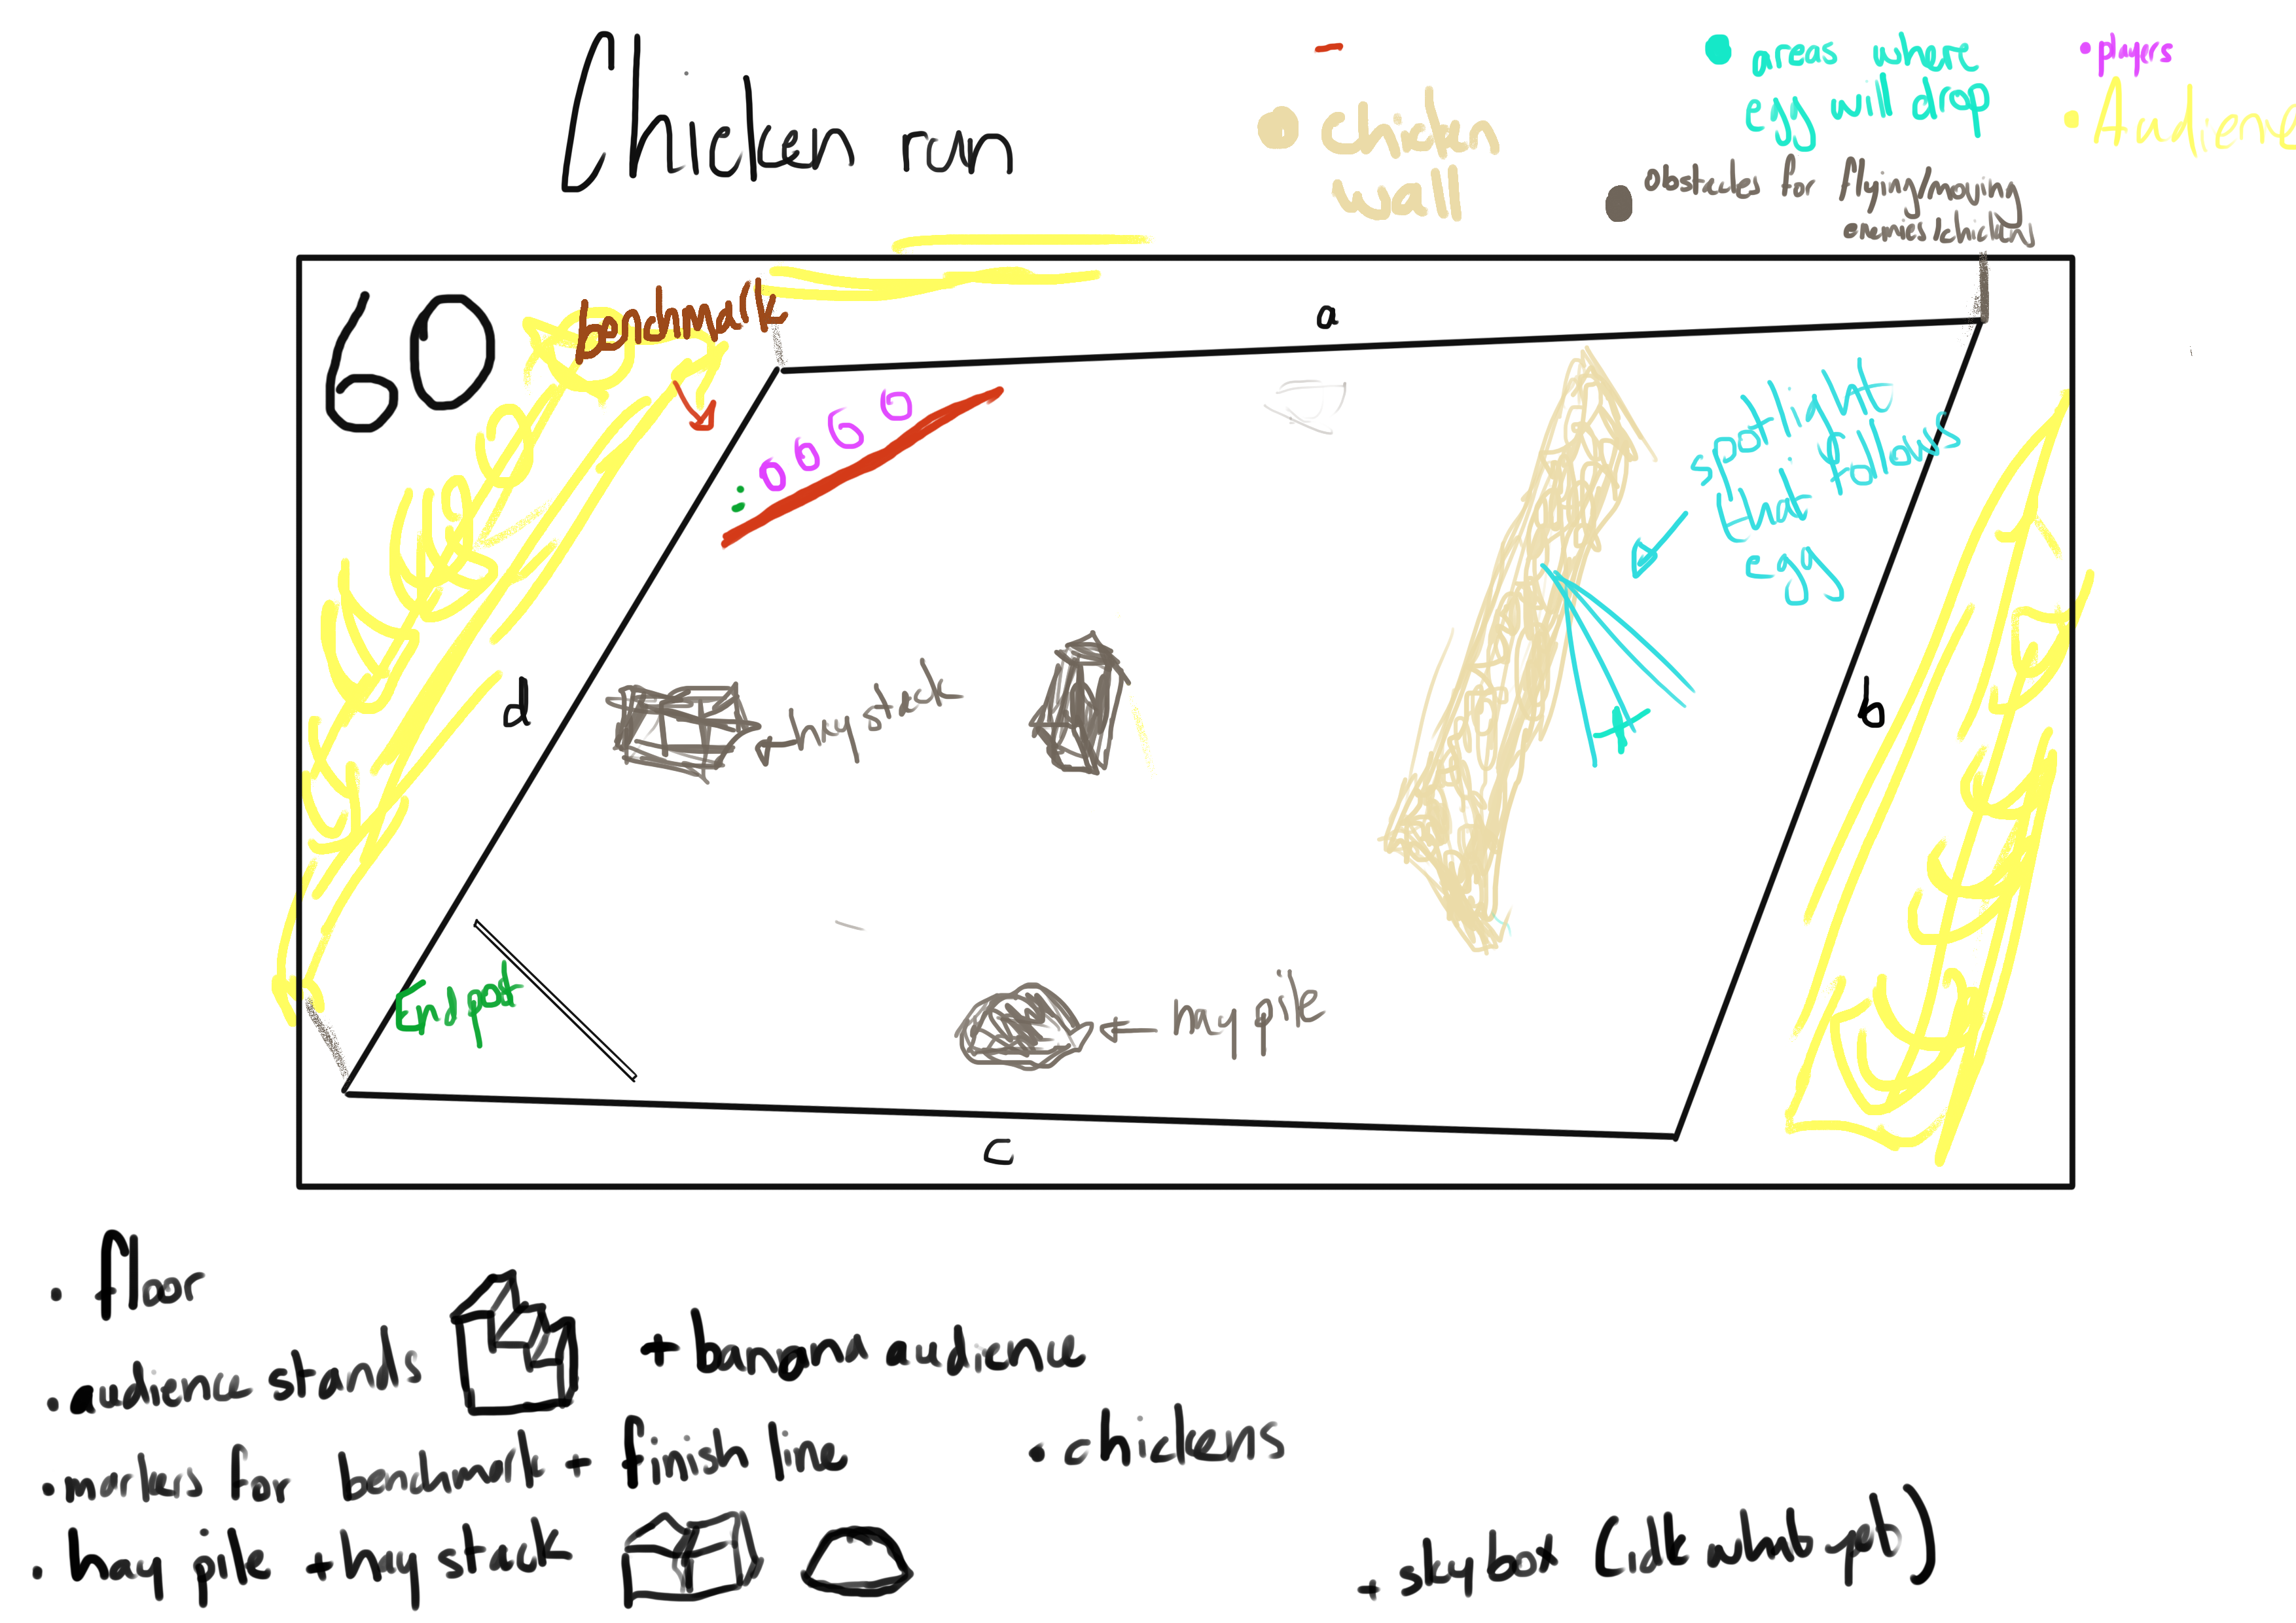 Chicken run
chicken
wall
areas where
egg will drop
•players
•Audience
obstacles for flying/moving
enemies/chicken
60
benchmark
a
spotlight
that follows
egg
d
hay stack
b
Endpot
hay pile
c
• floor
• audience stands + banana audience
• markers for benchmark + finish line
• chickens
• hay pile + hay stack
+ skybox (idk what yet)